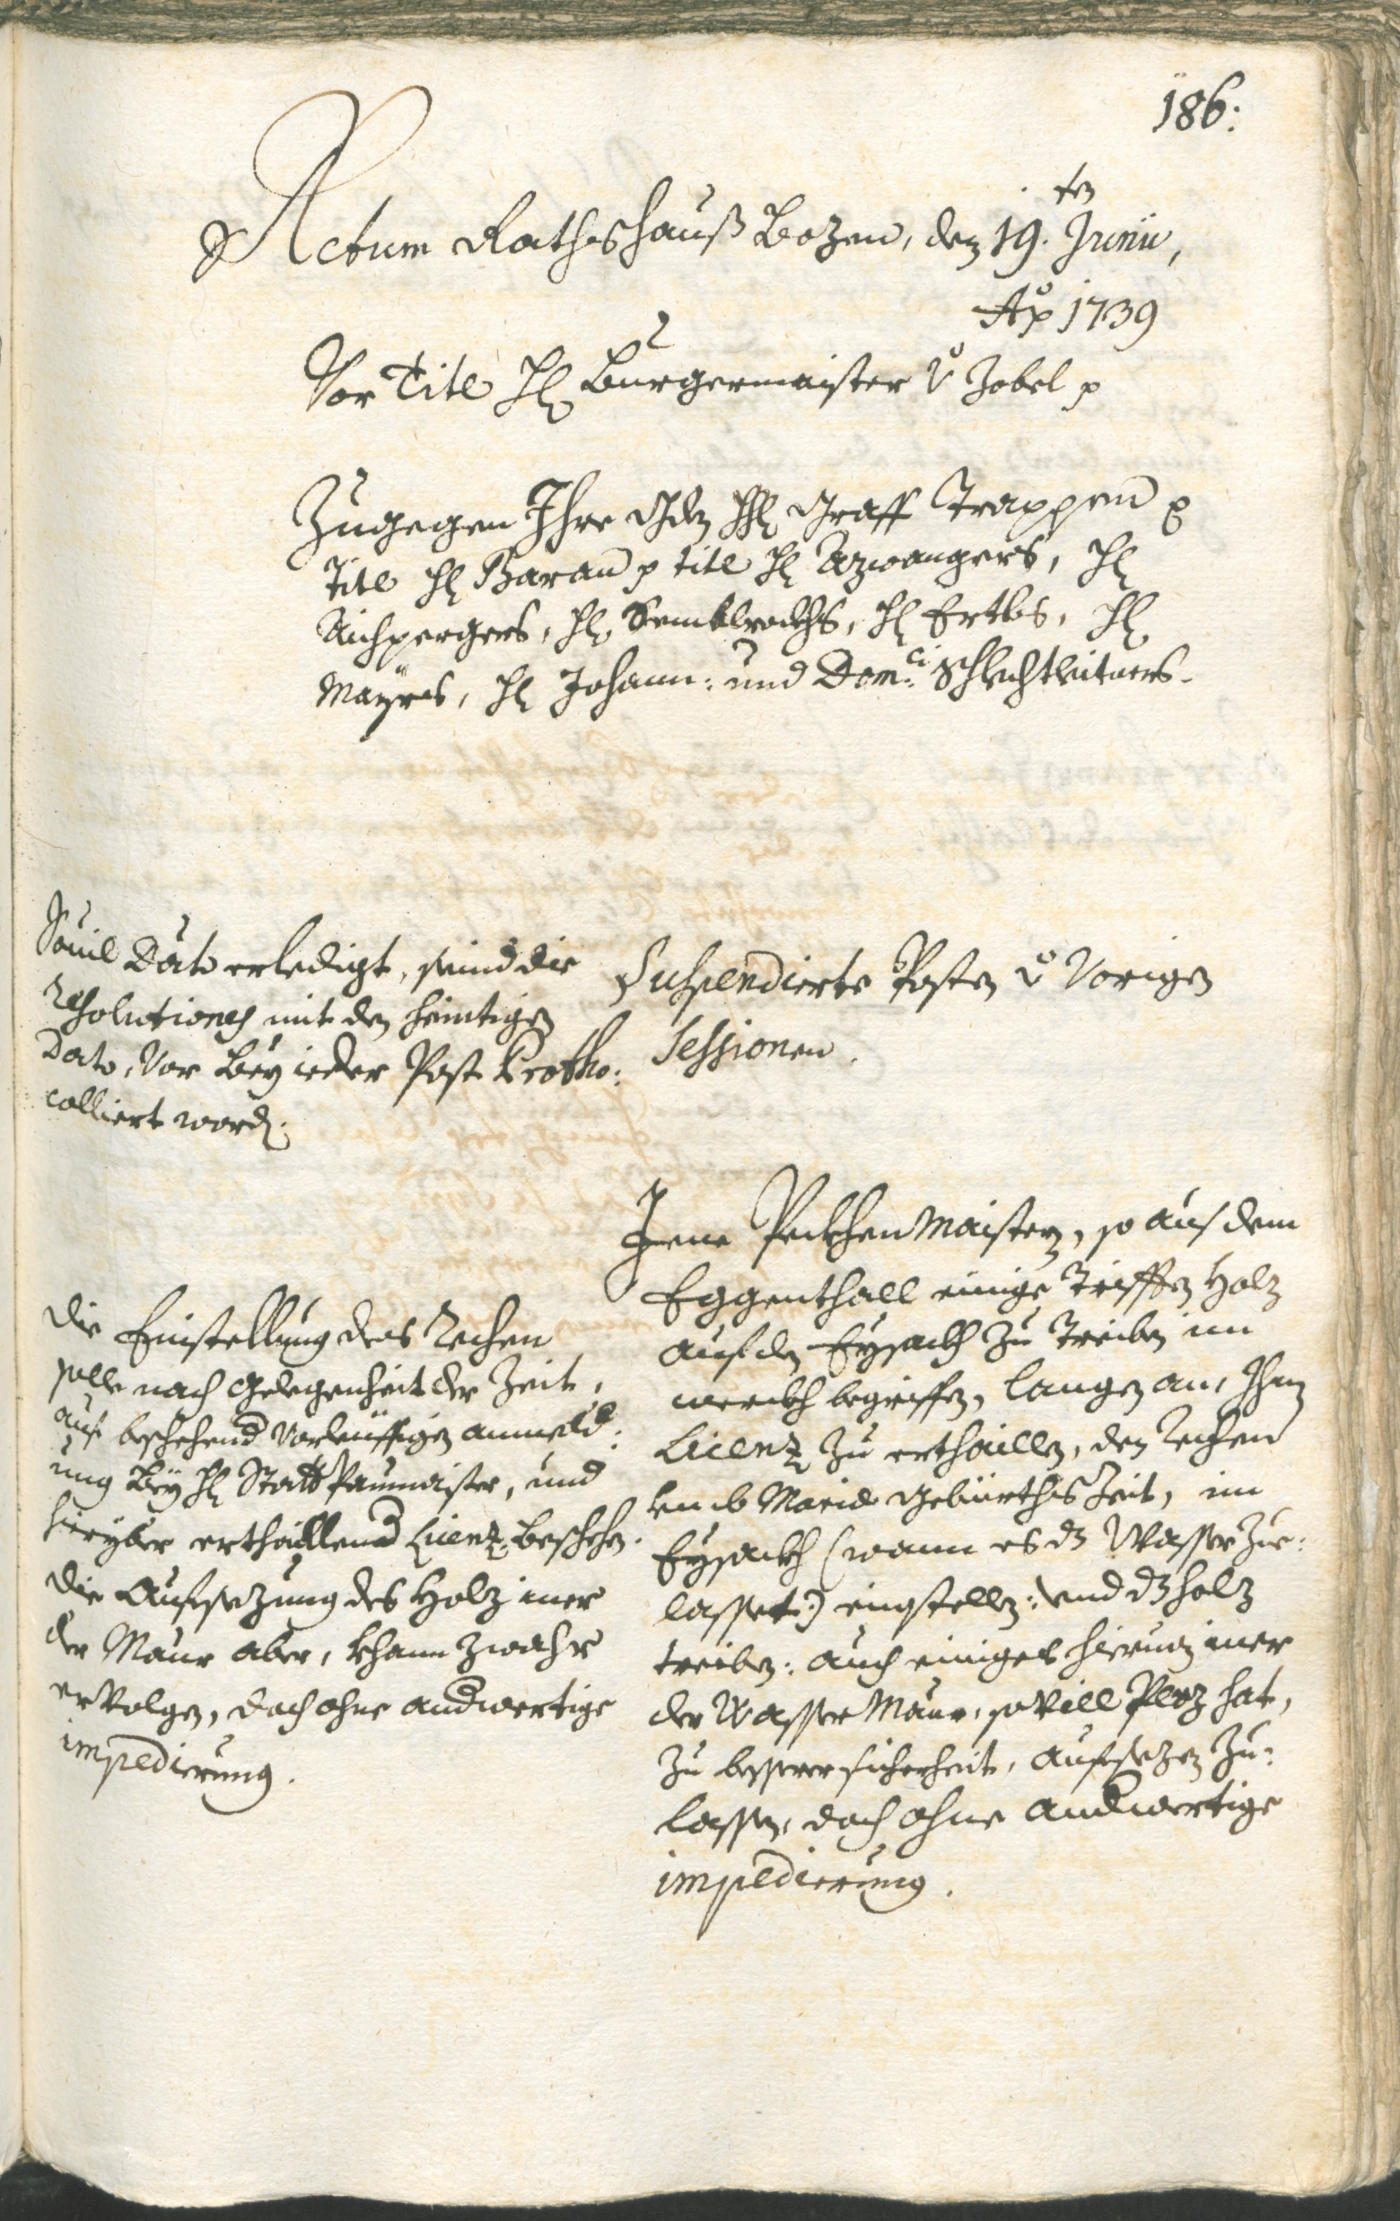 186:
Actum Rathshauß Bozen, den 19.ten Junii,
Ao 1739
Vor Titl H. Burgermaister v. Zobel p
Zugegen Ihro Gdn HH. Graff Trappen p
Titl H. Baran p titl H. Azwangers, H.
Aichpergers, H. Semblrockhs, H. Ertls, H.
Mayrs, H. Johann: und Dom:ci Schlechtleitners.
Souil Dato erledigt, seind die
Resolutiones mit den heintigen
Dato, Vor Bey ieder Post Protho:
colliert word.
Suspendierte Posten v. Vorigen
Sessionen.
Jene Peckhen Maistern, so aus dem
Eggenthall einige Trifften Holz
auf den Eysackh zu Treiben im
werckh begriffen, langen an, Ihnen
Licenz zu erthaillen, den Rechen
umb Mariæ Geburths Zeit, im
Eysackh (wann es dz Wasser zue:
lasset:) einstellen: und dz holz
treiben: auch einiges hierundter iner
der Wasser Maur, so vill Plaz hat,
zu besserer sicherheit, aufsezen zu:
lassen, doch ohne andwertige
impedierung.
Die Einstellung des Rechen
solle nach gelegenheit der Zeit,
auf beschehend vorleiffigen anmeld:
ung Bey H. Statt Paumaister, und
hieryber erthaillend Licenz beschehen.
Die Aufsezung des Holz iner
der Maur aber, khann zwahr
ervolgen, doch ohne andwertige
impedierung.